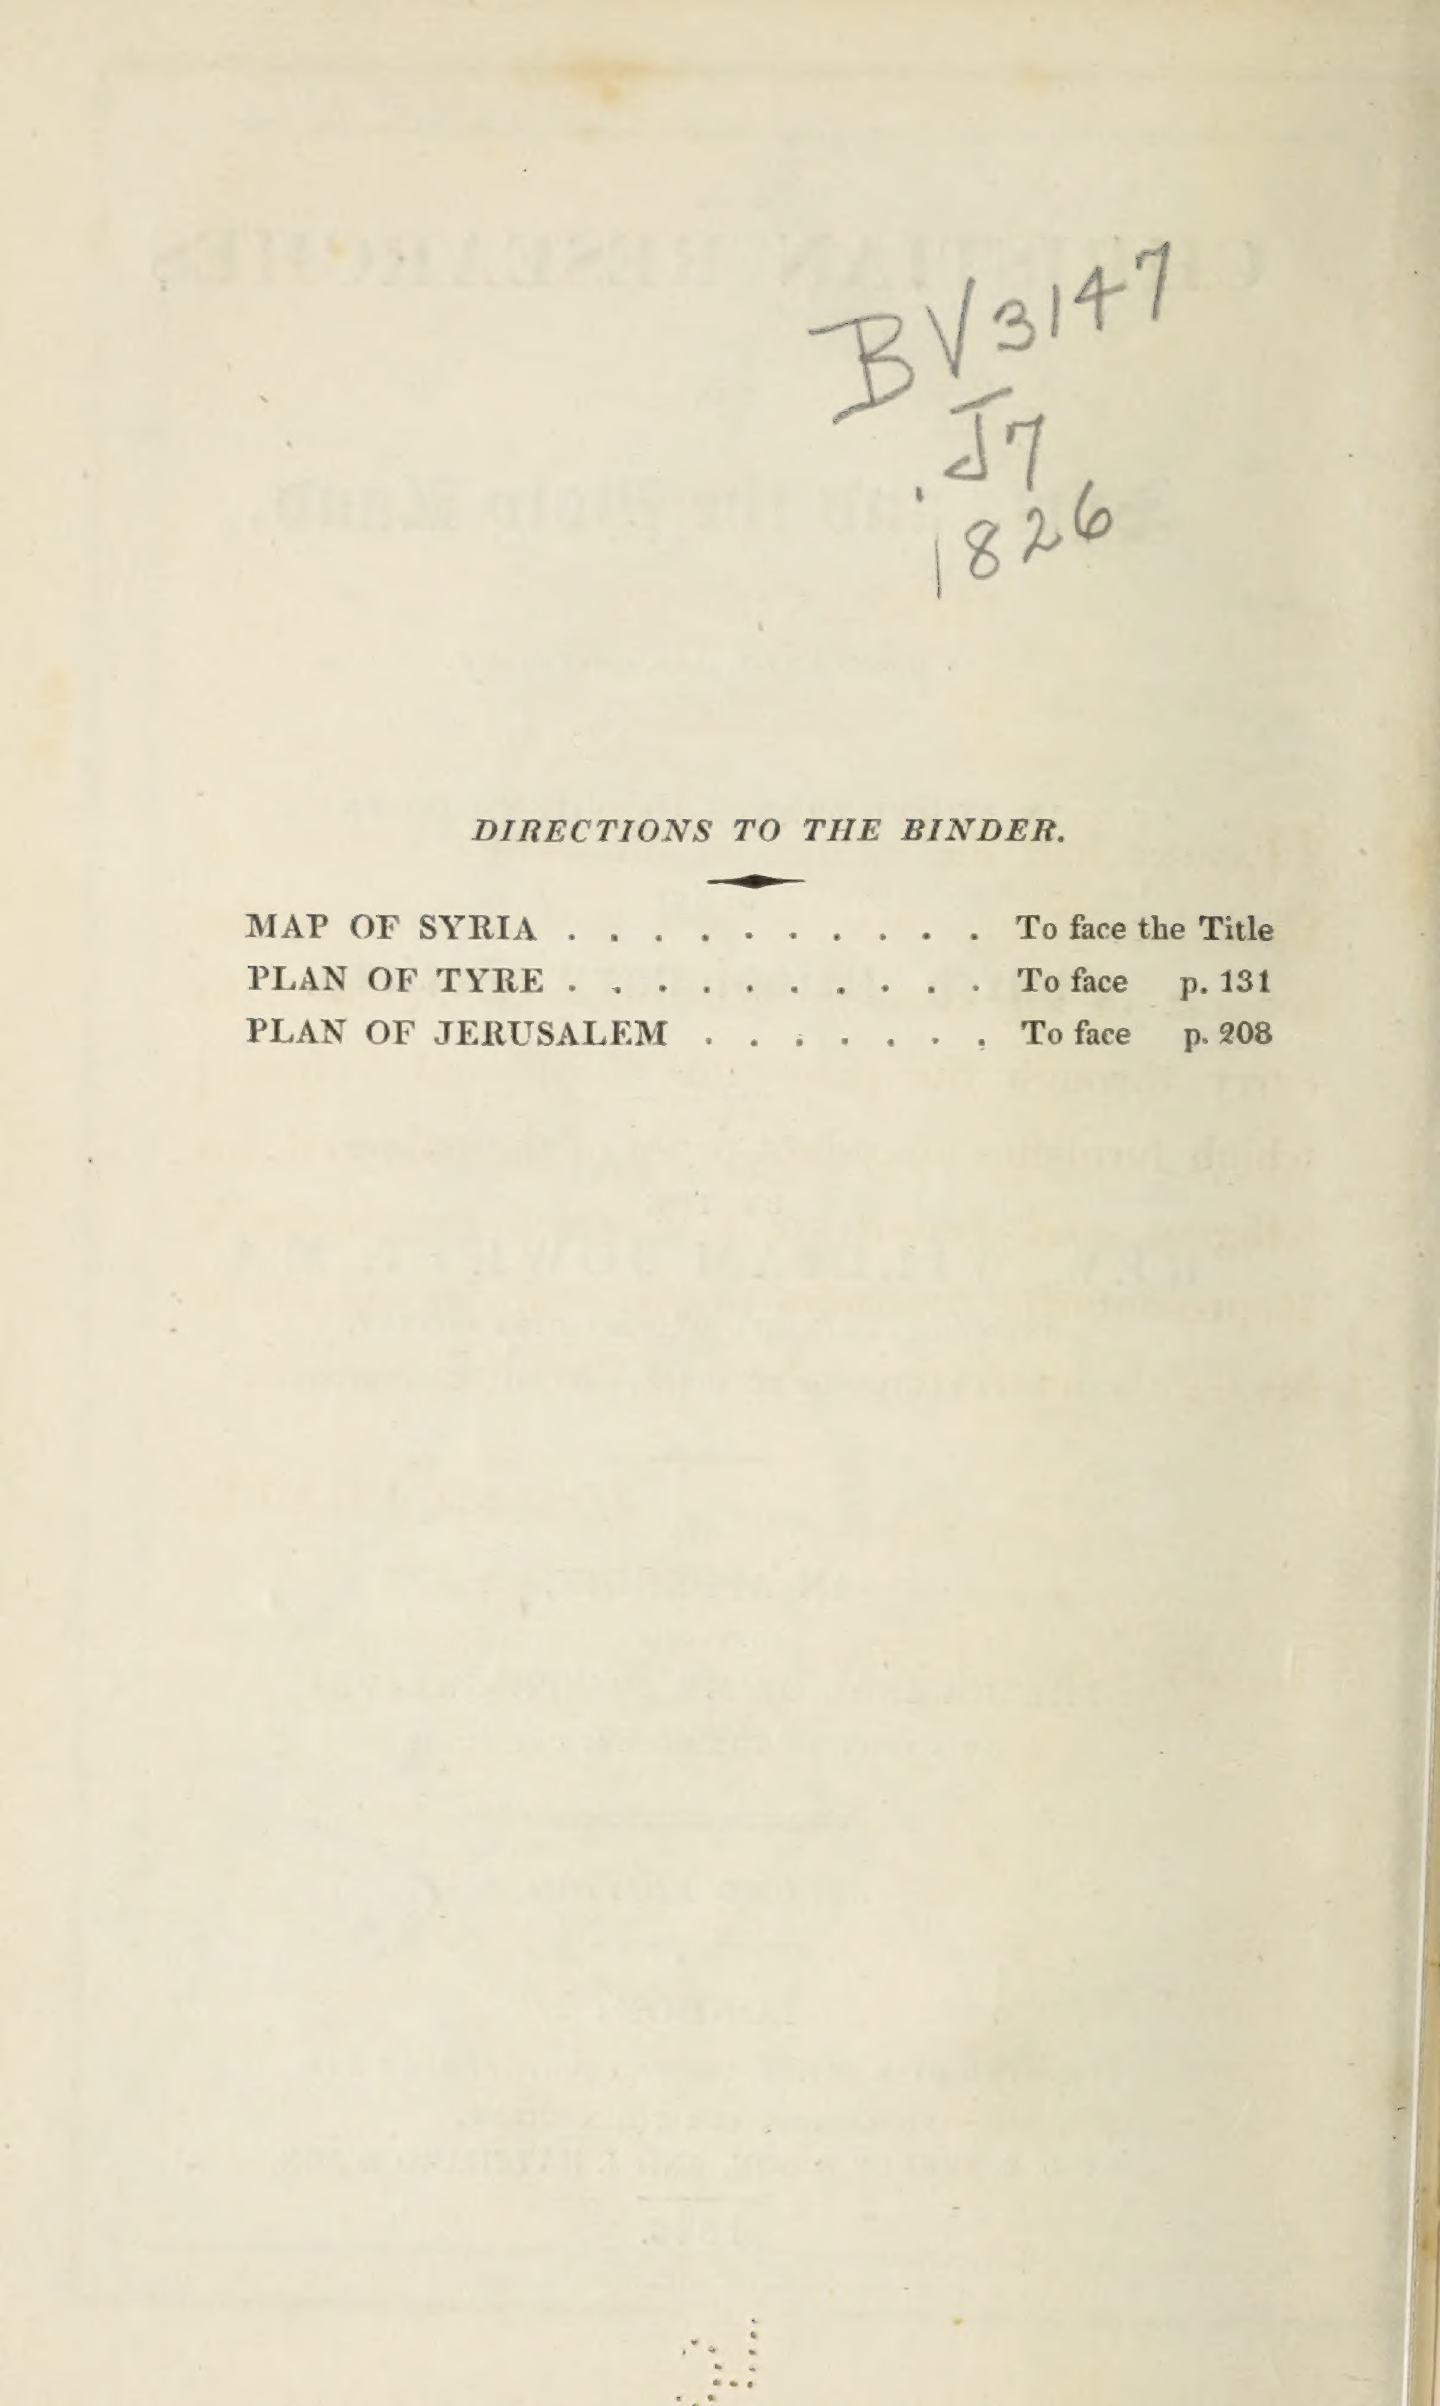 BV3147
.J7
1826
DIRECTIONS TO THE BINDER.
MAP OF SYRIA . . . . . . . . . . To face the Title
PLAN OF TYRE . . . . . . . . . . To face p. 131
PLAN OF JERUSALEM . . . . . . . To face p. 208